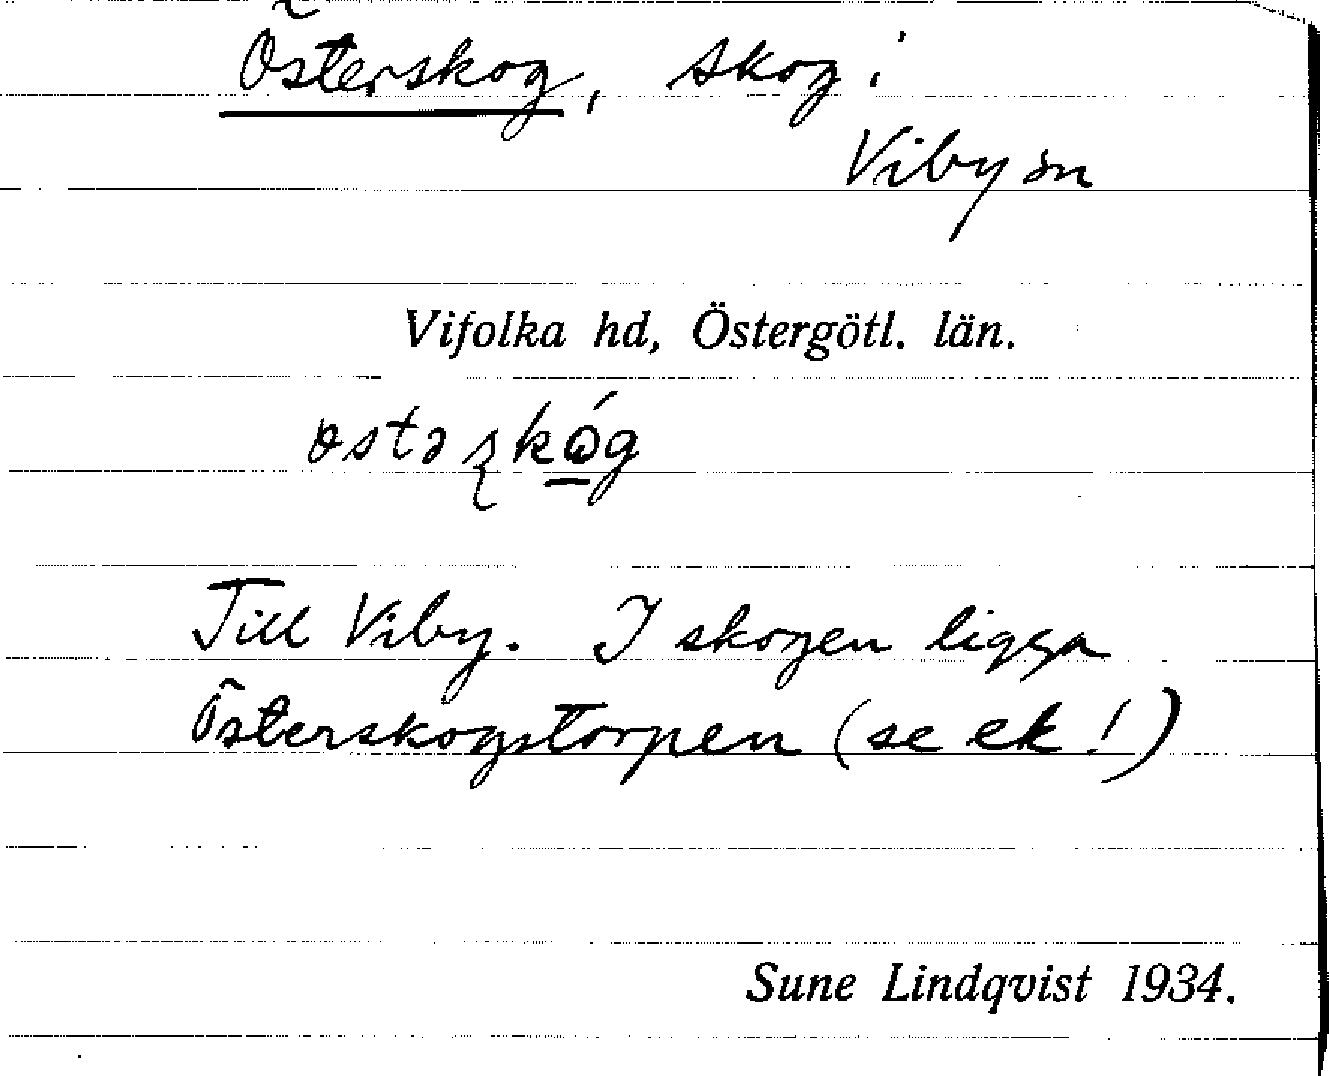 Österskog, skog i
Viby sn
Vifolka hd, Östergötl. län.
Till Viby. I skogen ligga
Österskogstorpen (se ek!)
Sune Lindqvist 1934.